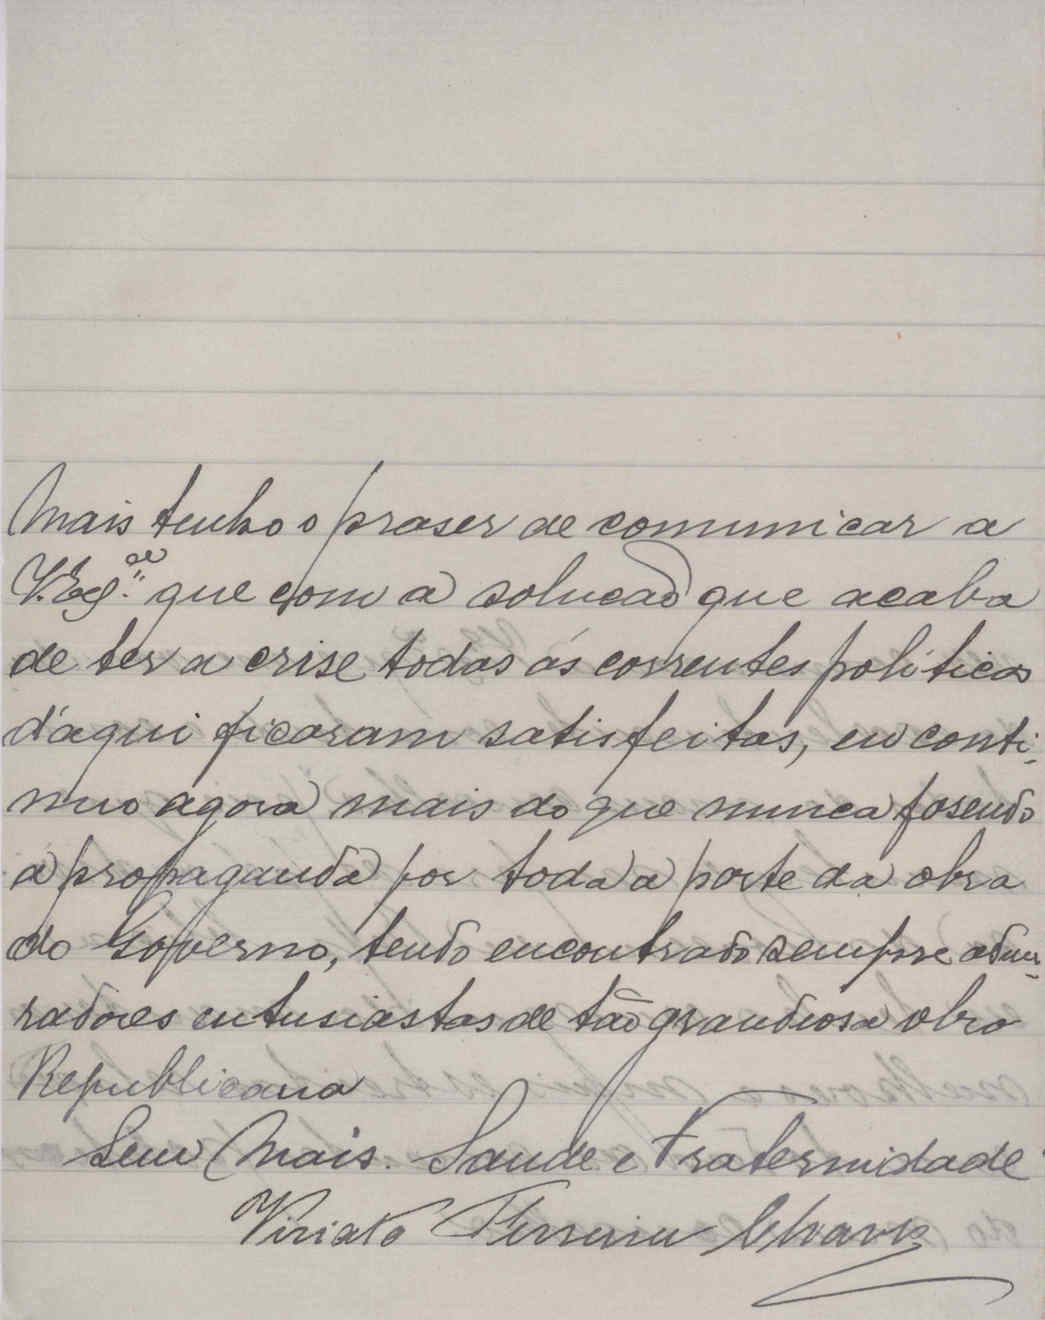 Mais tenho o praser de comunicar a
V. Ex.ª que com a solucaõ que acaba
de ter a crise todas ás correntes politicas
d'aqui ficaram satisfeitas, eu conti-
nuo agora mais do que nunca fasendo
a propaganda por toda a parte da obra
do Governo, tendo encontrado sempre admi-
radores entusiastas de tão grandiosa obra
Republicana
Sem Mais. Saude e Fraternidade
Viriato Ferreira Chaves